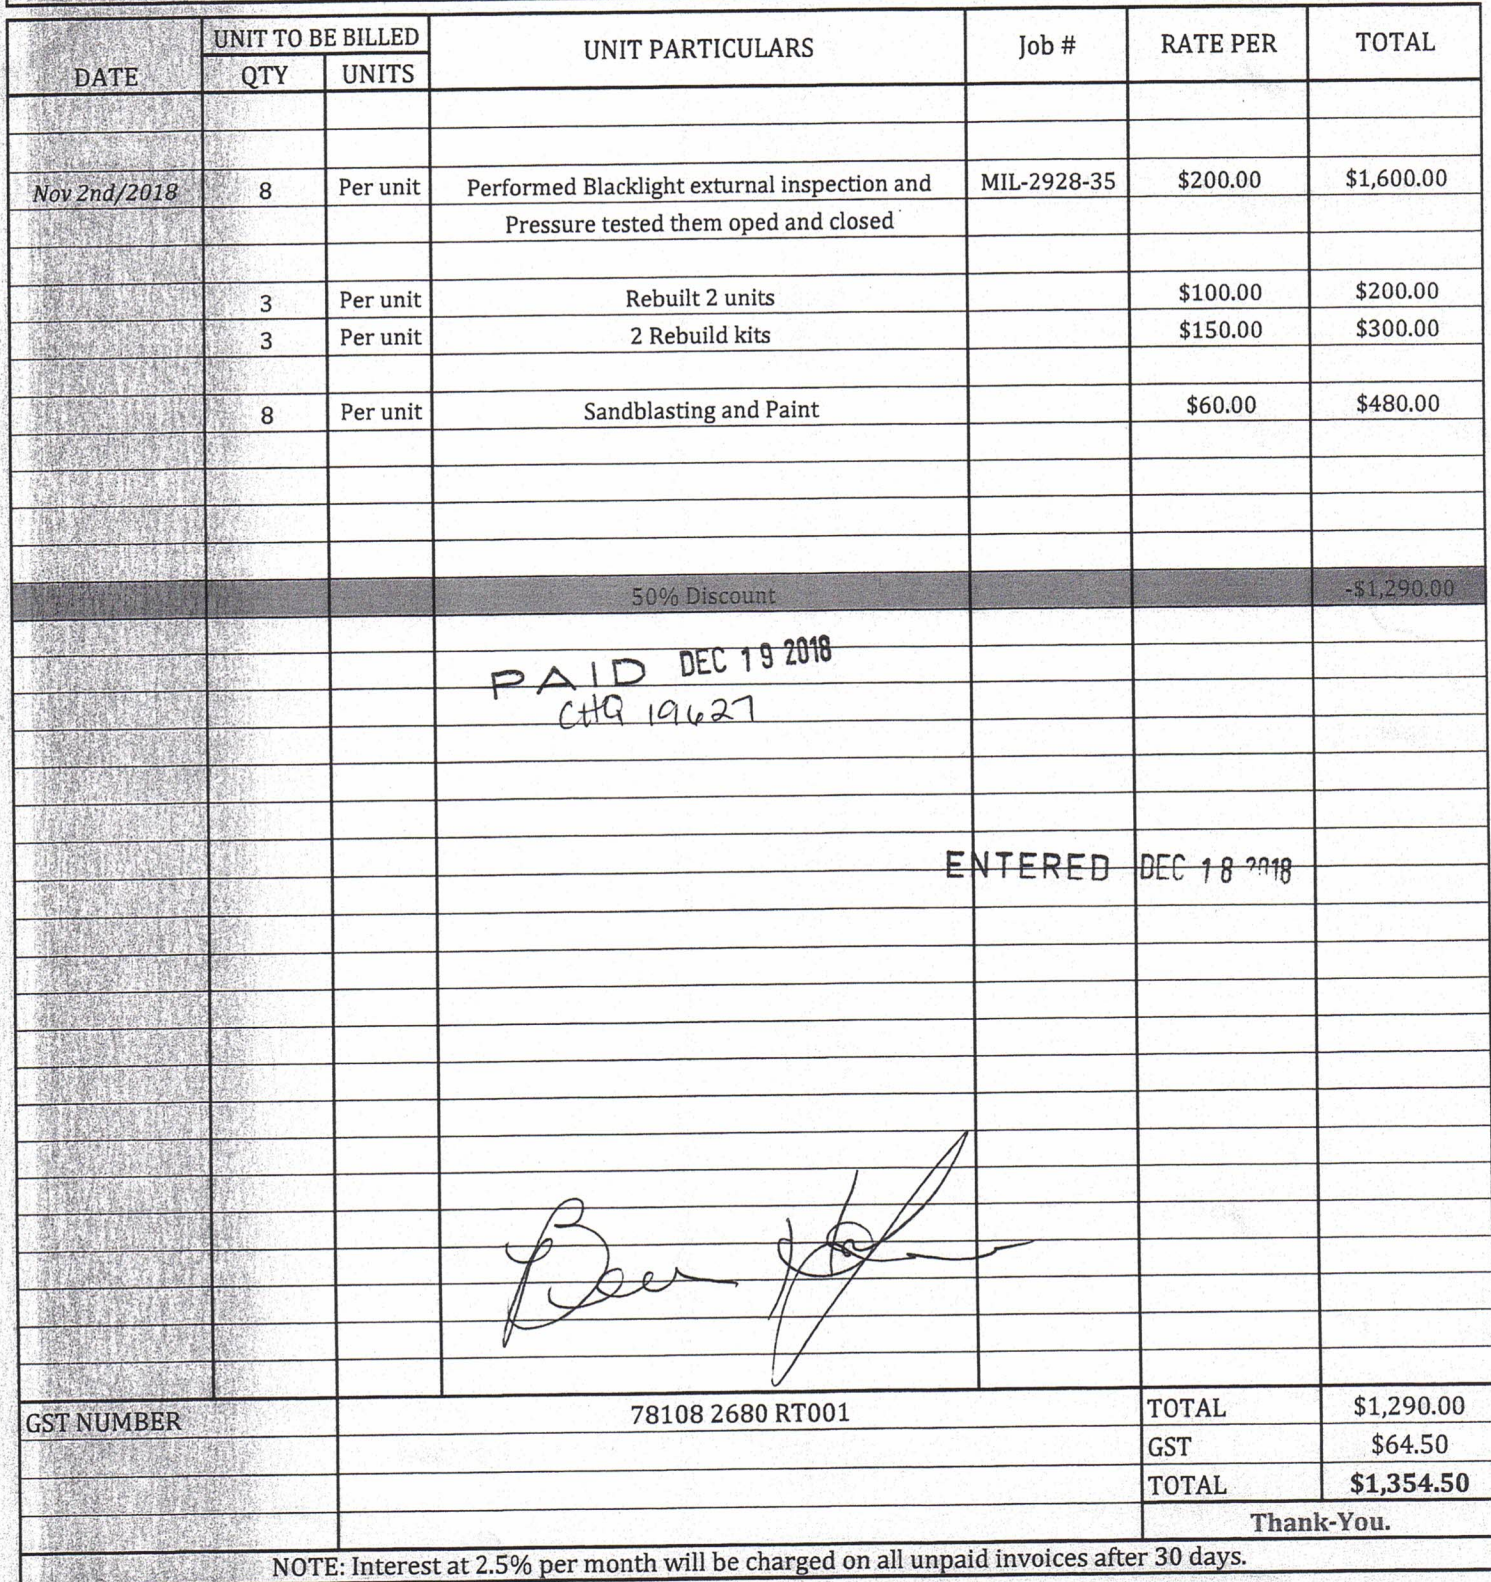 DATE UNIT TO BE BILLED UNIT PARTICULARS Job # RATE PER TOTAL
QTY UNITS
Nov 2nd/2018 8 Per unit Performed Blacklight exturnal inspection and MIL-2928-35 $200.00 $1,600.00
Pressure tested them oped and closed
3 Per unit Rebuilt 2 units $100.00 $200.00
3 Per unit 2 Rebuild kits $150.00 $300.00
8 Per unit Sandblasting and Paint $60.00 $480.00
50% Discount -$1,290.00
PAID DEC 19 2018
CHQ 19627
ENTERED DEC 18 2018
GST NUMBER 78108 2680 RT001 TOTAL $1,290.00
GST $64.50
TOTAL $1,354.50
Thank-You.
NOTE: Interest at 2.5% per month will be charged on all unpaid invoices after 30 days.